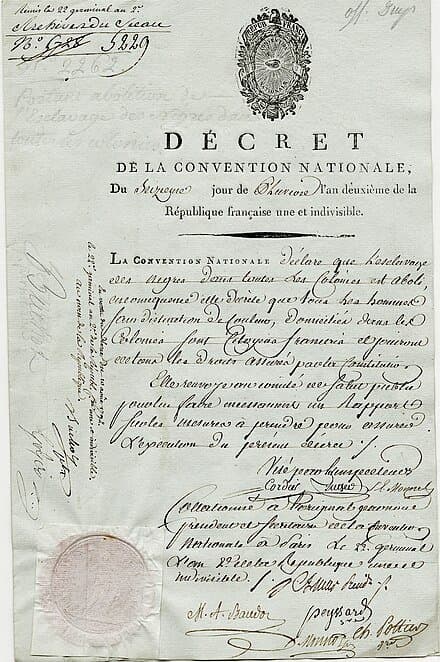 Remis le 22 germinal an 2e
Archives du Sceau
No. 5229
2262
Portant abolition de
l'Esclavage des Nègres dans
toutes les colonies
off. Imp
DÉCRET
DE LA CONVENTION NATIONALE,
Du Seizieme jour de Pluviose l'an deuxième de la
République française une et indivisible.
LA CONVENTION NATIONALE déclare que l'esclavage
des Negres dans toutes les Colonies est aboli,
en consequence elle décrète que tous les hommes
sans distinction de couleur, domiciliés dans les
Colonies sont Citoyens francais et jouiront
de tous les droits assurés par la Constitution
Elle renvoye au comité de salut public
pour lui faire incessamment un Rapport
sur les mesures à prendre pour assurer
l'execution du present decret
Visé par l'inspecteur
Cordier
Collationné à l'original par nous
president et secretaires de la Convention
Nationale à Paris le 22 germinal
L'an 2e de la Republique une et
indivisible
M. A. Baudot
Peyssard
Ch. Pottier
au nom de la République
le 22e germinal an 2e de la République une et indivisible